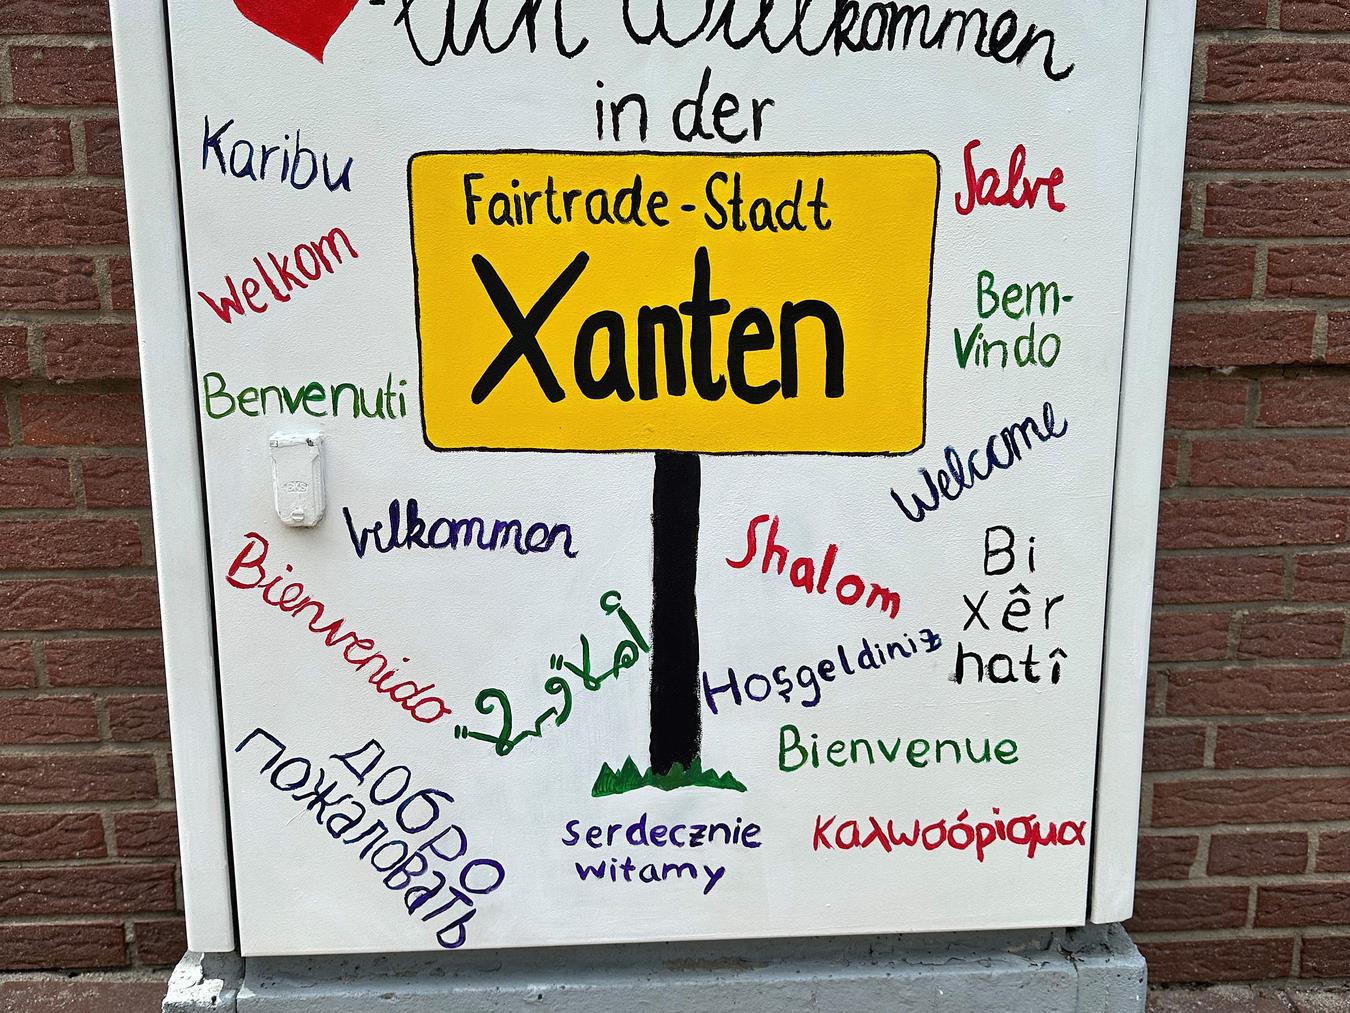 -lich Willkommen
in der
Fairtrade-Stadt
Xanten
Karibu
Welkom
Benvenuti
Velkommen
Bienvenido
أهلا وسهلا
добро
пожаловать
serdecznie
witamy
Salve
Bem-
Vindo
Welcome
Shalom
Bi
xêr
hatî
Hoşgeldiniz
Bienvenue
καλωσόρισμα